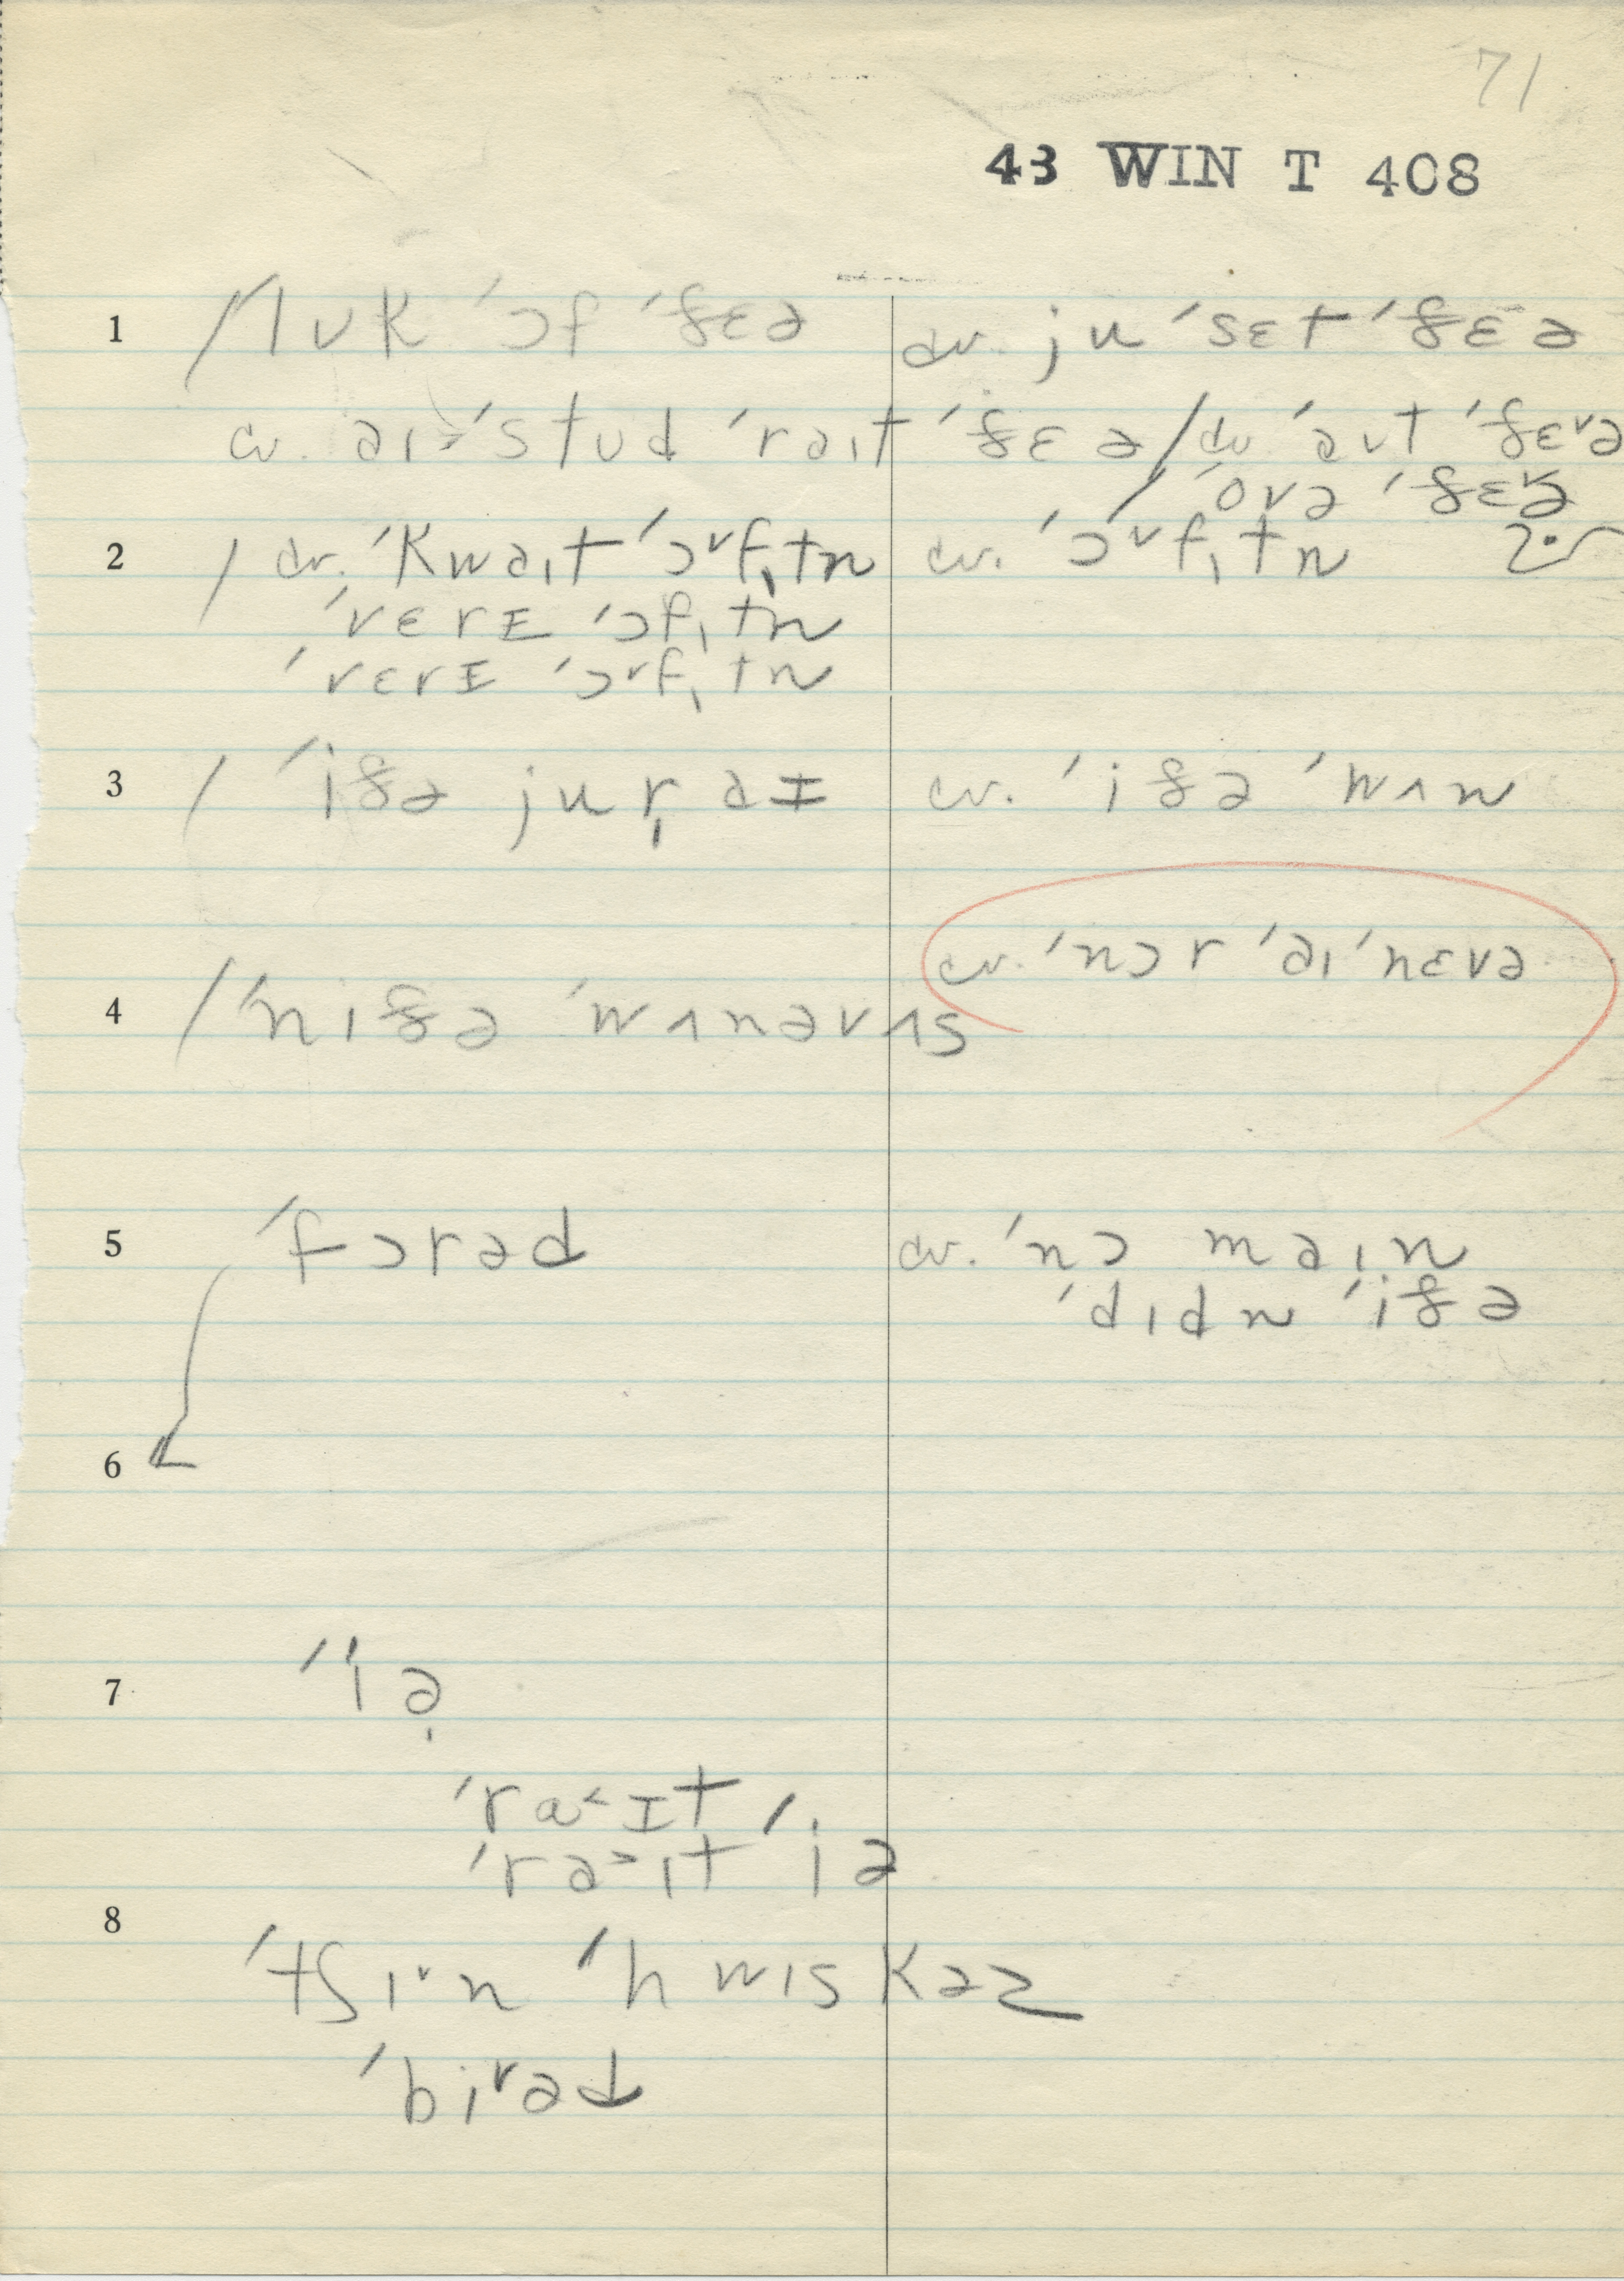 71
43 WIN T 408
1 / lʊk ˈɔf ˈðɛə cv. ju ˈsɛt ˈðɛə
cv. aɪ ˈstʊd ˈraɪt ˈðɛə / cv ˈaʊt ˈðɛᵛə
/ ˈovə ˈðɛᵛə
2 / cv. ˈkwaɪt ˈɔᵛfɪ̩tn cv. ˈɔᵛfɪtn
ˈvɛrɪ ˈɔfɪtn
ˈvɛrɪ ˈɔᵛfɪtn
3 / ˈiðə jur̩ aɪ cv. ˈiðə ˈwʌn
cv. ˈnɔr ˈaɪ ˈnɛvə
4 / ˈniðə ˈwʌnəvʌs
5 ˈfɔrəd cv. ˈnɔ maɪn
ˈdɪdn ˈiðə
6
7 ˈiə̩
ˈra˂ɪt
ˈra˃ɪt ˈiə
8
ˈtʃɪᵛn ˈhwɪskəz
ˈbiᵛəd